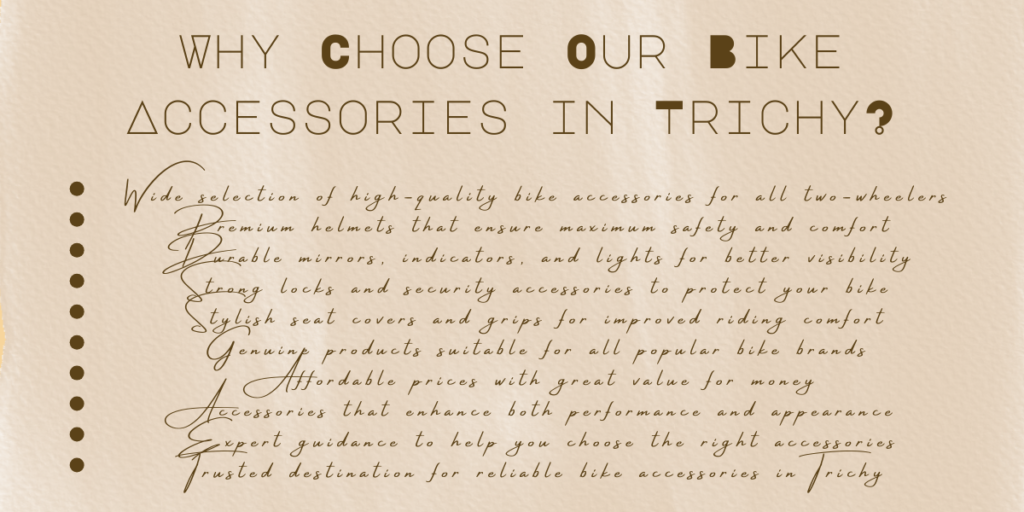 Why Choose Our Bike
Accessories in Trichy?
• Wide selection of high-quality bike accessories for all two-wheelers
• Premium helmets that ensure maximum safety and comfort
• Durable mirrors, indicators, and lights for better visibility
• Strong locks and security accessories to protect your bike
• Stylish seat covers and grips for improved riding comfort
• Genuine products suitable for all popular bike brands
• Affordable prices with great value for money
• Accessories that enhance both performance and appearance
• Expert guidance to help you choose the right accessories
• Trusted destination for reliable bike accessories in Trichy